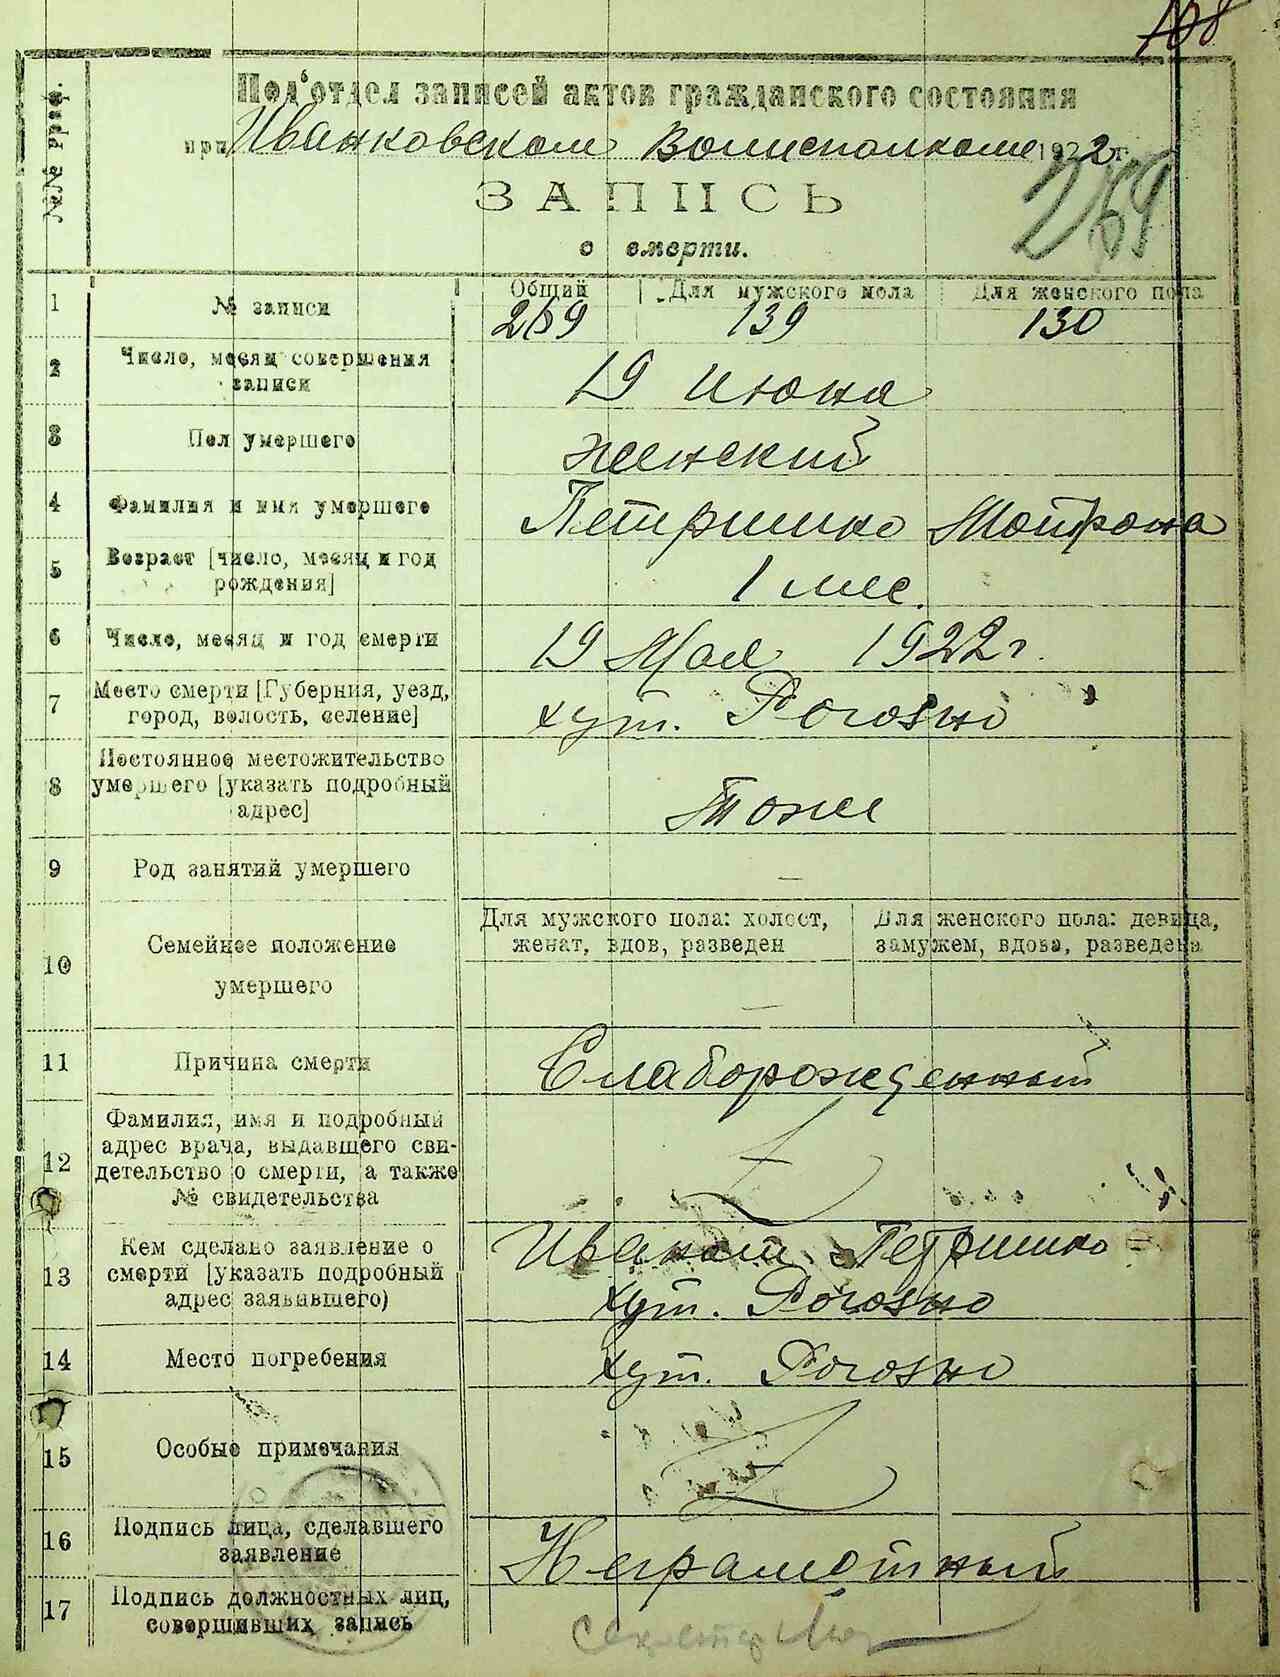 168
Под'отдел записей актов гражданского состояния
при Иванковском Волисполкоме 1922 г.
269
№№ граф.
ЗАПИСЬ
о смерти.
1 № записи
Общий Для мужского пола Для женского пола
269 139 130
2 Число, месяц совершения
записи
19 июня
3 Пол умершего
женский
4 Фамилия и имя умершего
Петришко Мотрона
5 Возраст [число, месяц и год
рождения]
1 мес.
6 Число, месяц и год смерти
19 Мая 1922 г.
7 Место смерти [Губерния, уезд,
город, волость, селение]
хут. Рогозно
8 Постоянное местожительство
умершего [указать подробный
адрес]
Тоже
9 Род занятий умершего
—
10 Семейное положение
умершего
Для мужского пола: холост,
женат, вдов, разведен
Для женского пола: девица,
замужем, вдова, разведена
—
11 Причина смерти
Слаборожденный
12 Фамилия, имя и подробный
адрес врача, выдавшего сви-
детельство о смерти, а также
№ свидетельства
13 Кем сделано заявление о
смерти [указать подробный
адрес заявившего)
Иваном Петришко
хут. Рогозно
14 Место погребения
хут. Рогозно
15 Особые примечания
16 Подпись лица, сделавшего
заявление
Неграмотный
17 Подпись должностных лиц,
совершивших запись
Секретарь